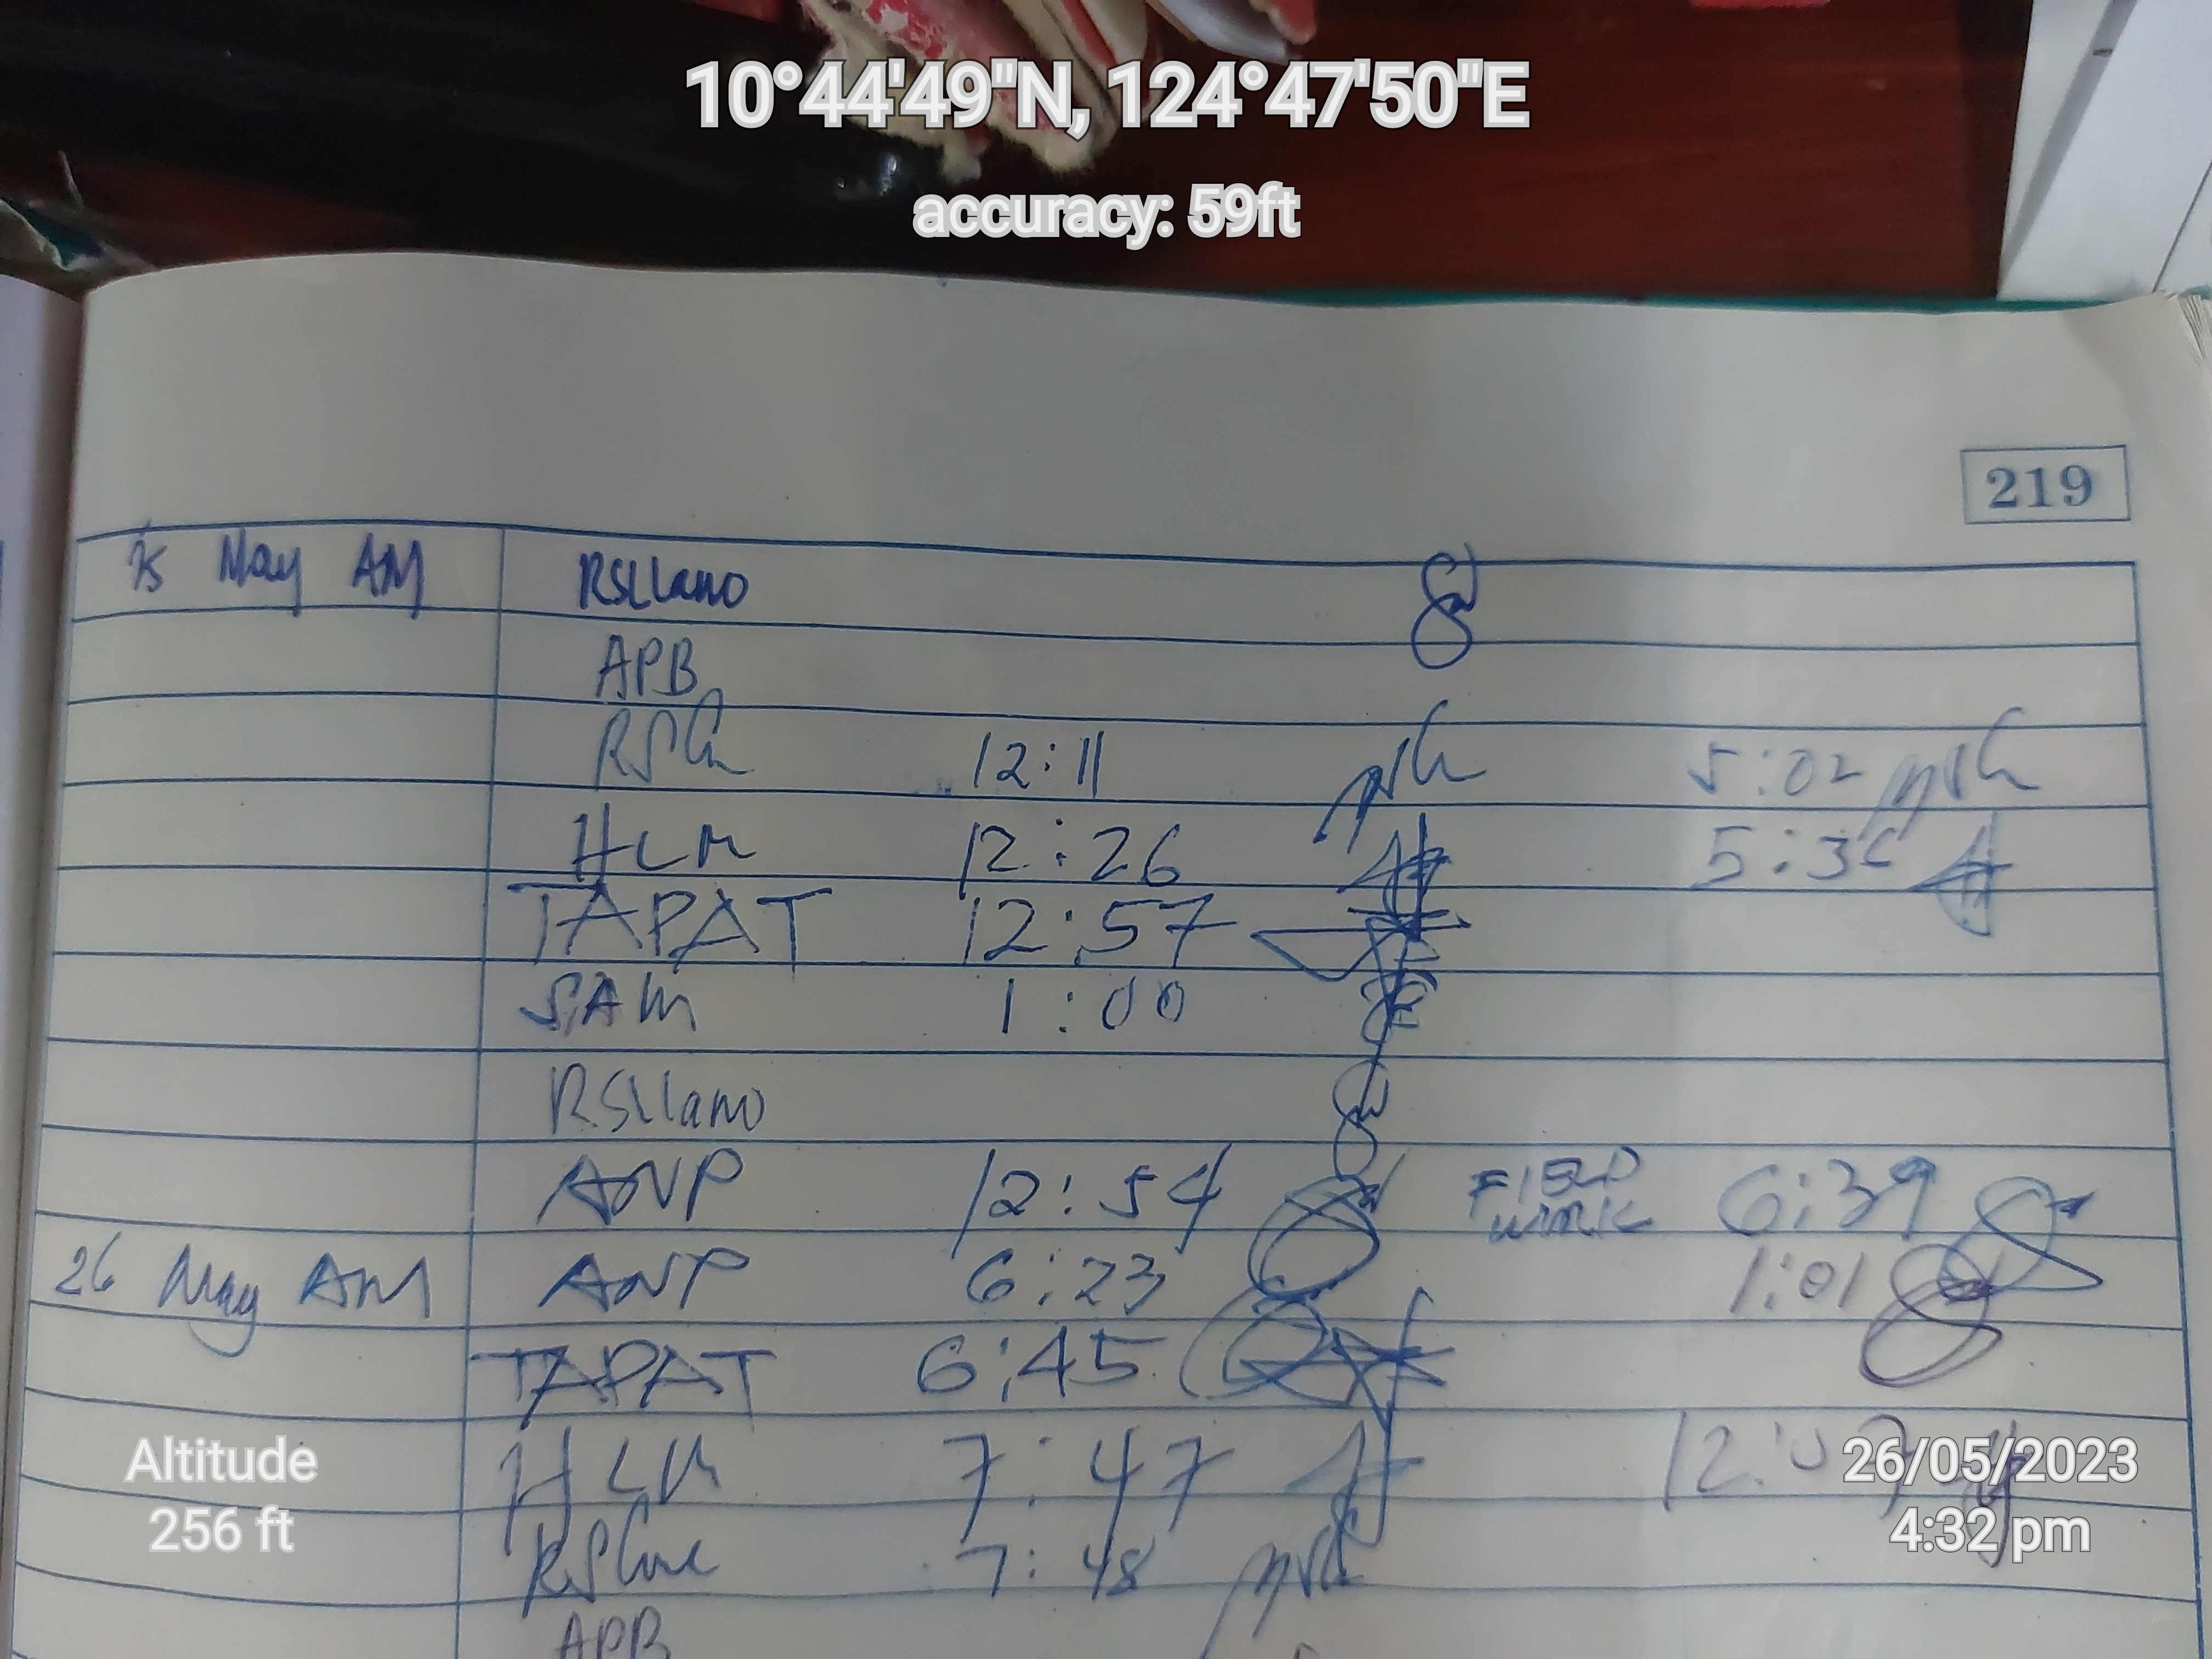 10°44'49"N, 124°47'50"E
accuracy: 59ft
219
May AM RSLlano
APB
12:11 5:02
HLM 12:26 5:3
TAPAT 12:57
SAM 1:00
RSLlano
ANP 12:54 FIELD WORK 6:39
26 May AM ANP 6:23 1:01
TAPAT 6:45
HLM 7:47
7:48
APB
Altitude
256 ft
26/05/2023
4:32 pm